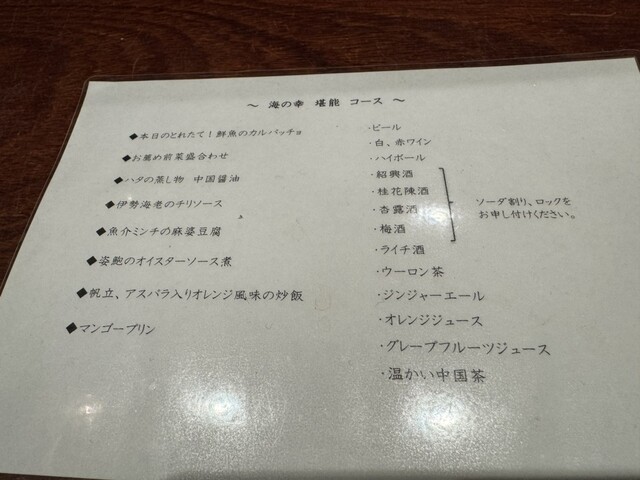 ～ 海の幸 堪能 コース ～
◆本日のとれたて！鮮魚のカルパッチョ
◆お薦め前菜盛合わせ
◆ハタの蒸し物 中国醤油
◆伊勢海老のチリソース
◆魚介ミンチの麻婆豆腐
◆姿鮑のオイスターソース煮
◆帆立、アスパラ入りオレンジ風味の炒飯
◆マンゴープリン
・ビール
・白、赤ワイン
・ハイボール
・紹興酒
・桂花陳酒
・杏露酒
・梅酒
・ライチ酒
・ウーロン茶
・ジンジャーエール
・オレンジジュース
・グレープフルーツジュース
・温かい中国茶
ソーダ割り、ロックを
お申し付けください。